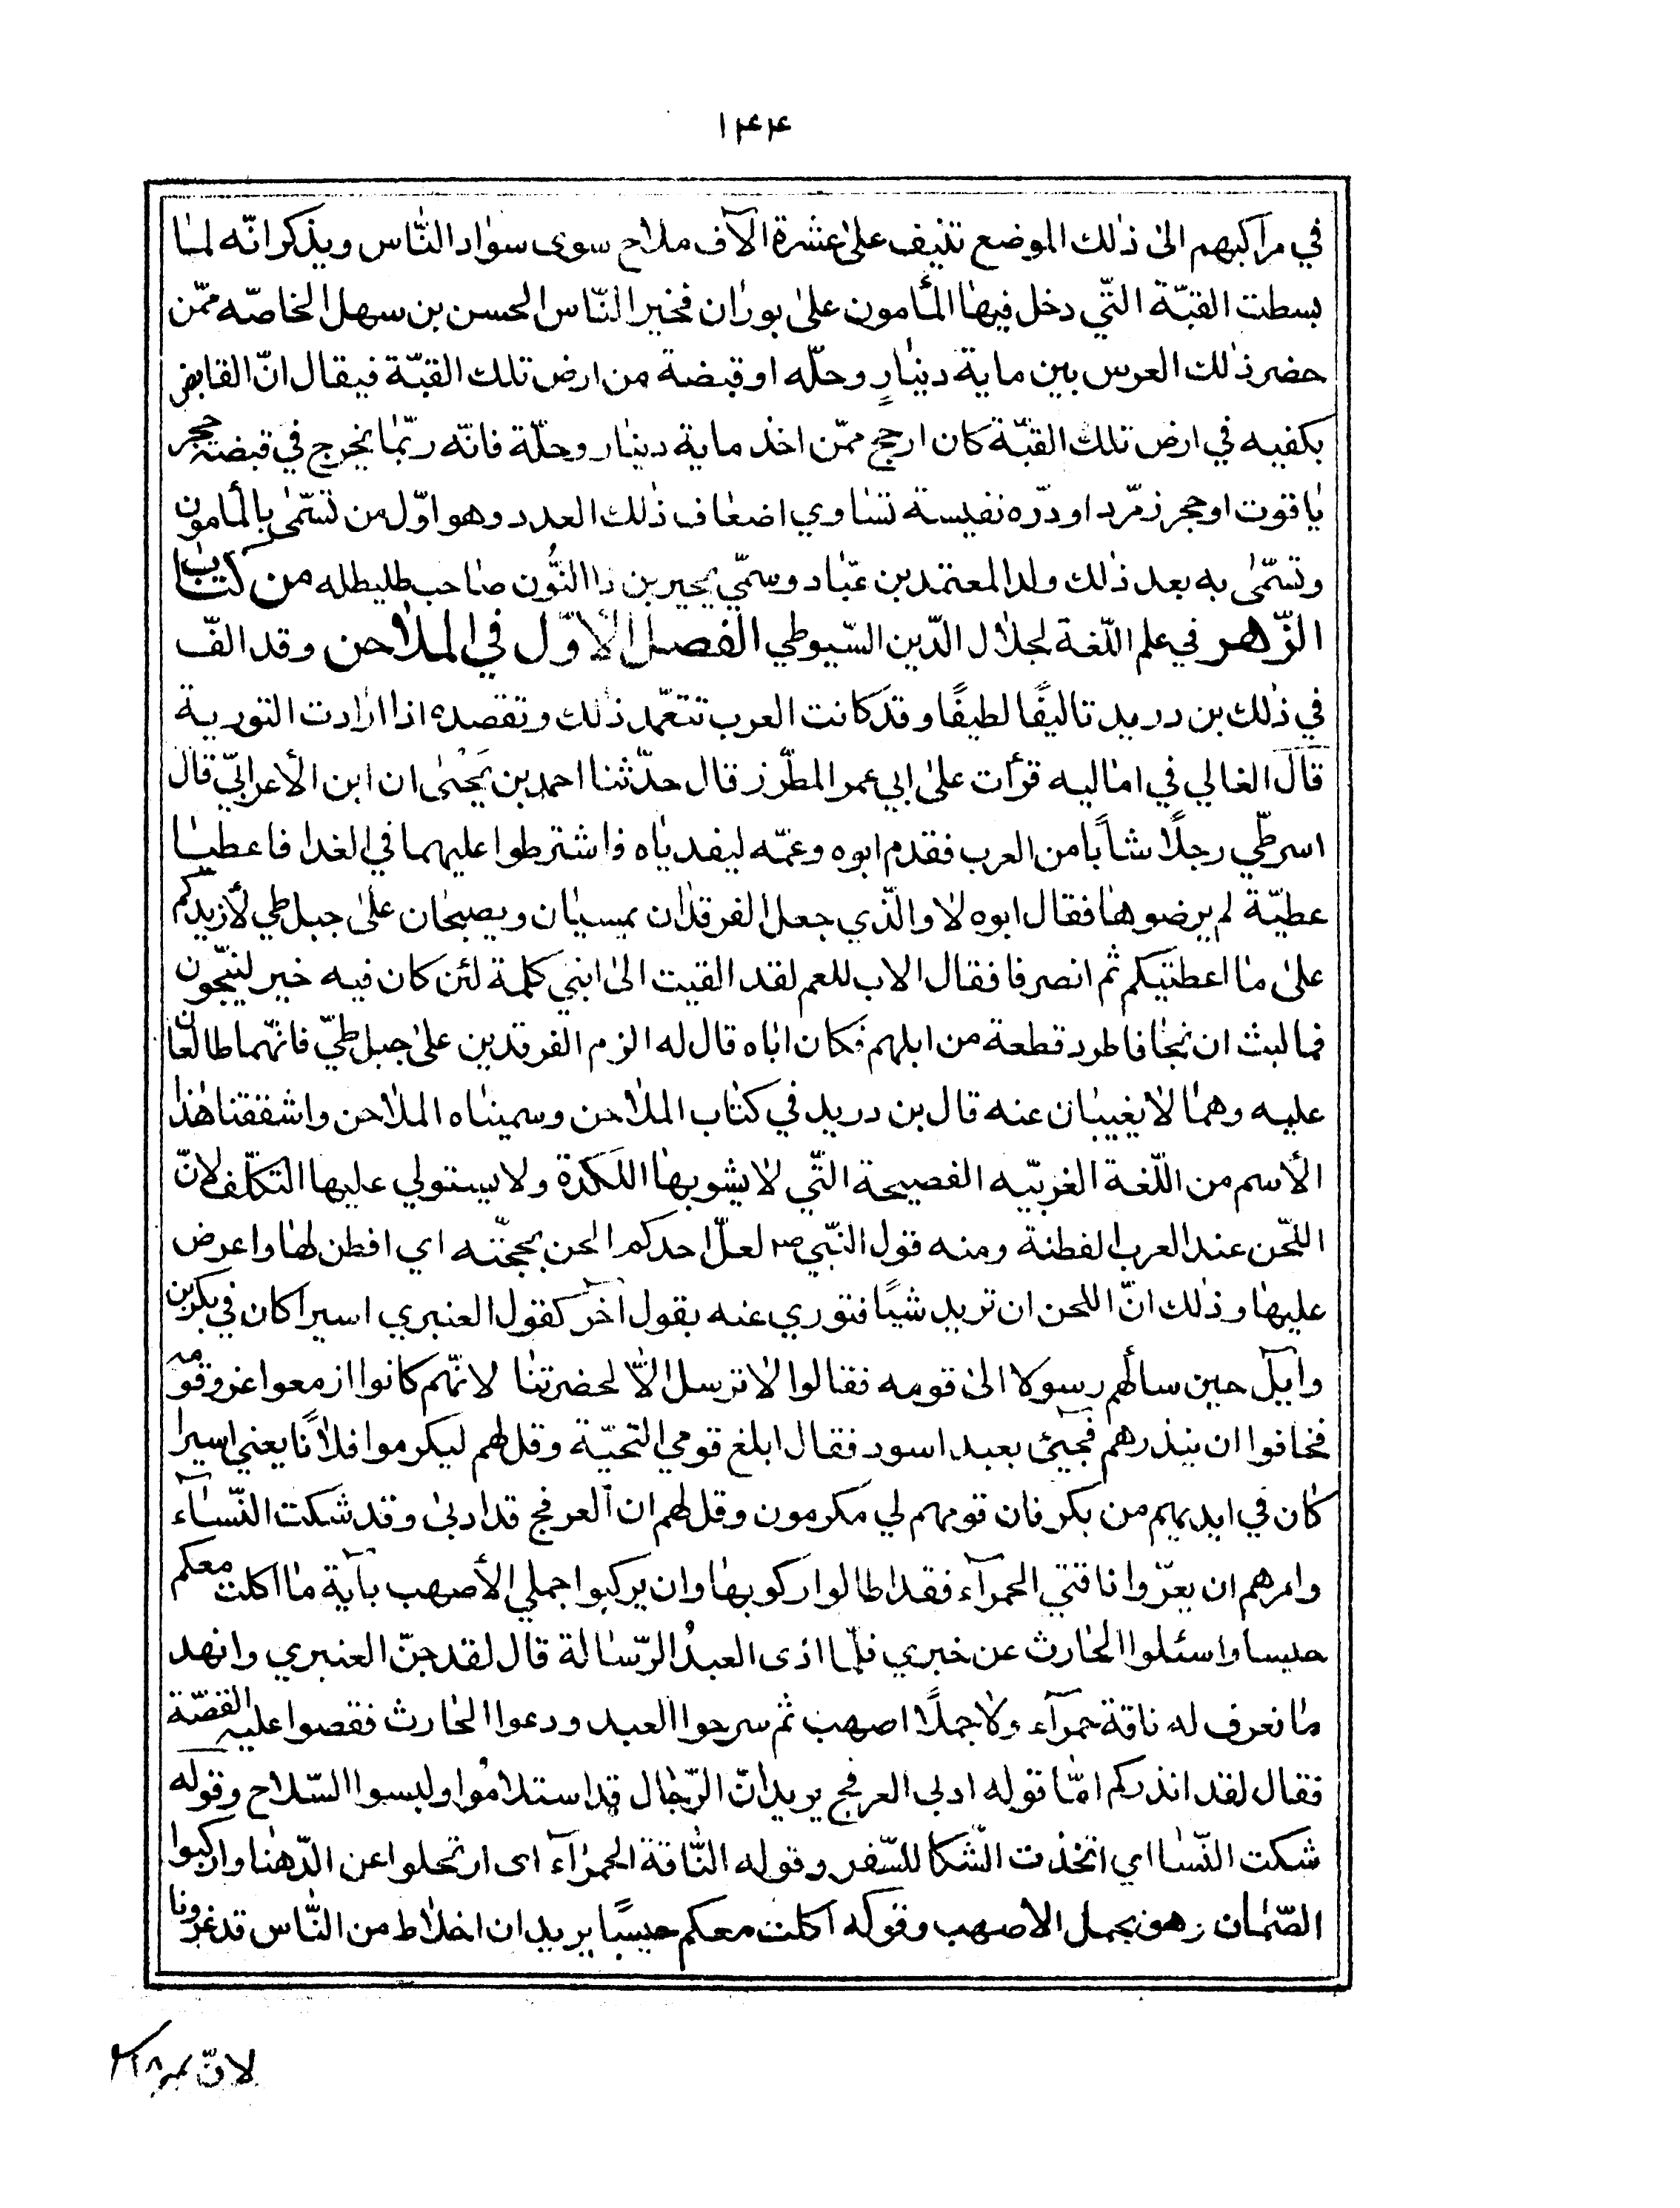 ١٤٤
في مراكبهم الى ذلك الموضع تنيف على عشرة الآف ملاح سوى سواد النّاس ويذكر انّه لمّا
بسطت القبّة التّي دخل فيها المأمون على بوران فخير النّاس الحسن بن سهل الخاصّه ممّن
حضر ذلك العرس بين ماية دينارٍ وحلّه او قبضة من ارض تلك القبّة فيقال انّ القابض
بكفيه في ارض تلك القبّة كان ارجح ممّن اخذ ماية دينار وحلّة فانّه ربّما يخرج في قبضته حجر
ياقوت او حجر زمّرد او درّه نفيسة تساوي اضعاف ذلك العدد وهو اوّل من تسمّى بالمأمون
وتسمّى به بعد ذلك ولد المعتمد بن عبّاد وسمّي يحيى بن ذا النُّون صاحب طليطله من كتاب
الزّهر في علم اللّغة لجلال الدّين السّيوطي الفصل الأوّل في الملاحن وقد الفّ
في ذلك بن دريد تاليفًا لطيفًا وقد كانت العرب تتعّمد ذلك وتقصده اذا ارادت التورية
قال الغالي في اماليه قرأت على ابي عمر المطّرز قال حدّثنا احمد بن يَحْيى ان ابن الأعرابيّ قال
اسر طّي رجلًا شابًا من العرب فقدم ابوه وعمّه ليفدياه فاشترطوا عليهما في الفدا فاعطيا
عطيّة لم يرضوها فقال ابوه لا والّذي جعل الفرقدان يمسيان ويصبحان على جبل طي لأزيدكم
على ما اعطتيكم ثم انصرفا فقال الاب للعم لقد القيت الى ابني كلمة لئن كان فيه خير لينجّون
فما لبث ان نجا فاطرد قطعة من ابلهم فكان اباه قال له الزم الفرقدين على جبل طّي فانّهما طالعان
عليه وهما لا يغيبان عنه قال بن دريد في كتاب الملاحن وسميناه الملاحن واشققنا هذا
الأسم من اللّغة الغربيّه الفصيحة التّي لا يشوبها اللكدرة ولا يستولي عليها التكلّف لانّ
اللحّن عند العرب الفطنة ومنه قول النبّي ص لعلّ احدكم الحن بحجتّه اي افطن لها واعرض
عليها وذلك انّ اللحن ان تريد شيًا فتوري عنه بقول آخر كقول العنبري اسيرا كان في بكر بن
وآيل حين سألهم رسولا الى قومه فقالوا لا ترسل الّا لحضرتنا لانّهم كانوا ازمعوا غزو قومه
فخافوا ان ينذرهم فجيئ بعبد اسود فقال ابلغ قومي التحيّة وقل لهم ليكرموا فلانًا يعني اسيرا
كان في ايديهم من بكر فان قومهم لي مكرمون وقل لهم ان العرفج قد ادبى وقد شكت النّسآء
وامرهم ان يعرّوا ناقتي الحمرآء فقد اطالوا ركوبها وان يركبوا جملي الأصهب بآية ما اكلت معكم
حيسا واسئلوا الحارث عن خبري فلّما ادّى العبدُ الرّسالة قال لقد جنّ العنبري وانهد
ما نعرف له ناقة حمرآء ولا جملًا اصهب ثم سرحوا العبد ودعوا الحارث فقصوا عليه القصّة
فقال لقد انذركم امّا قوله ادبى العرفج يريد انّ الرّجال قد استلاموُا ولبسوا السّلاح وقوله
شكت النّسا اي اتّخذت الشّكا للسّفر وقوله النّاقة الحمرآء اى ارتحلوا عن الدّهنا واركبوا
الصّمان وهو بجمل الاصهب وقوله اكلت معكم حيسًا يريد ان اخلاط من النّاس قد غزونا
لانّ